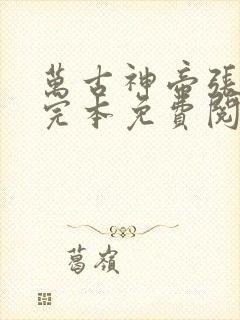 萬古神帝張
完本免費閱
葛嶺